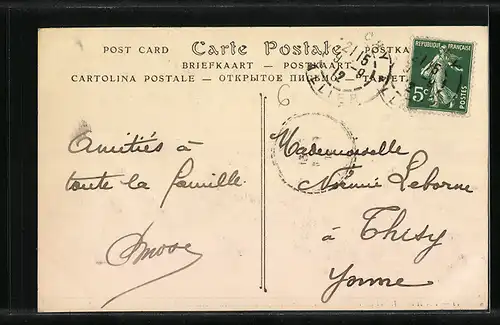 POST CARD Carte Postale POSTKA
BRIEFKAART — POSTKAART
CARTOLINA POSTALE — ОТКРЫТОЕ ПИСЬМО
RÉPUBLIQUE FRANÇAISE
5c
POSTES
6
Amitiés à
toute la famille
Mademoiselle
Noémie Leborne
à Thésy
Yonne